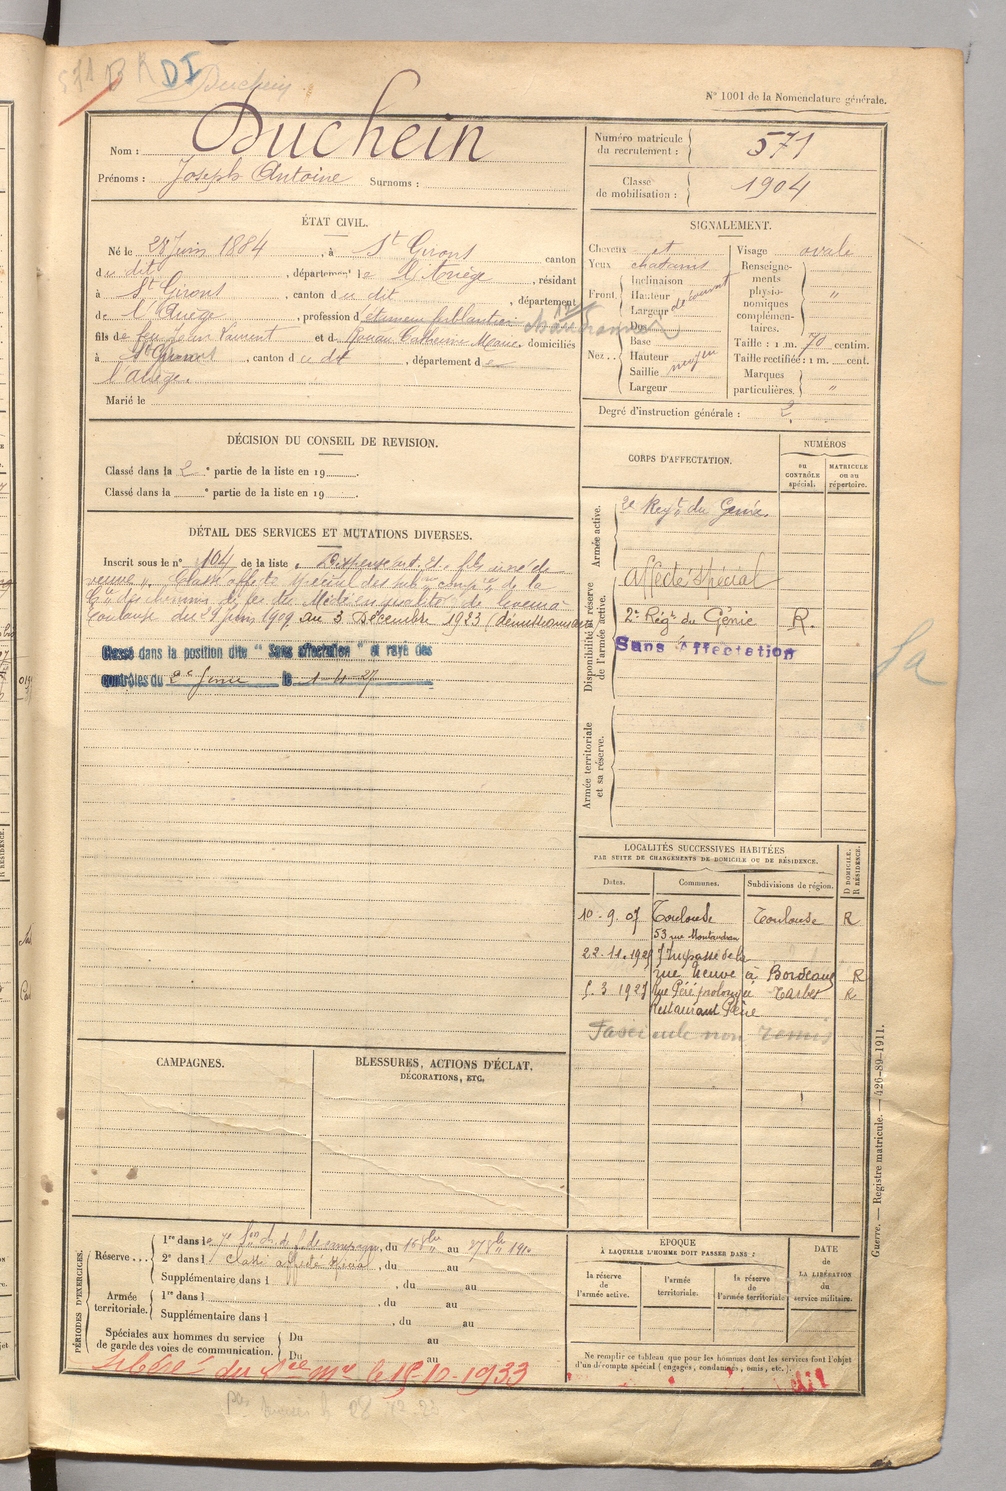 571 B DI Duchein
N° 1001 de la Nomenclature générale.
Nom : Duchein
Prénoms : Joseph Antoine Surnoms :
Numéro matricule du recrutement : 571
Classe de mobilisation : 1904
ÉTAT CIVIL.
Né le 28 Juin 1884, à St Girons canton
du dit, département de l'Ariège, résidant
à St Girons, canton du dit, département
de l'Ariège, profession d'étameur ferblantier
fils de feu Jean Vincent et de Rouan Catherine Marie, domiciliés
à St Girons, canton du dit, département de
l'Ariège.
Marié le
SIGNALEMENT.
Cheveux et
Yeux chatains
Front Inclinaison
Hauteur découvert
Largeur
Nez Dos
Base
Hauteur moyen
Saillie
Largeur
Visage ovale
Renseignements physionomiques complémentaires. "
Taille : 1 m. 70 centim.
Taille rectifiée : 1 m. cent.
Marques particulières. "
Degré d'instruction générale : 2
DÉCISION DU CONSEIL DE REVISION.
Classé dans la 2e partie de la liste en 19
Classé dans la e partie de la liste en 19
DÉTAIL DES SERVICES ET MUTATIONS DIVERSES.
Inscrit sous le n° 104 de la liste. Dispensé art. 21. fils aîné de
veuve". Classé affecté spécial des de la
Cie des chemins de fer du Midi en qualité de
Toulouse du 9 Juin 1909 au 3 Décembre 1923 (démissionnaire
Classé dans la position dite "Sans affectation" et rayé des
contrôles du 2e Génie le 1-4-27
CORPS D'AFFECTATION.
NUMÉROS
au CONTRÔLE spécial.
MATRICULE ou au répertoire.
Armée active.
2e Regt du Génie
Disponibilité et réserve de l'armée active.
affecté spécial
2e Régt du Génie R.
Sans Affectation
Sa
Armée territoriale et sa réserve.
LOCALITÉS SUCCESSIVES HABITÉES
PAR SUITE DE CHANGEMENTS DE DOMICILE OU DE RÉSIDENCE.
Dates. Communes. Subdivisions de région. D DOMICILE. R RÉSIDENCE.
10-9.07 Toulouse Toulouse R
53 rue Montaudran
22-11.192 Impasse de la
rue Neuve à Bordeaux R
5.3 192 Rue Péré prolongée Tarbes R
Restaurant Père
Fascicule non remis
CAMPAGNES.
BLESSURES, ACTIONS D'ÉCLAT,
DÉCORATIONS, ETC.
PÉRIODES D'EXERCICES.
Réserve... 1re dans le , du au
2e dans l Classé affecté spécial, du au
Supplémentaire dans l , du au
Armée territoriale. 1re dans l , du au
Supplémentaire dans l , du au
Spéciales aux hommes du service de garde des voies de communication. Du au
Du au
Libéré du Sce Mre le 15-10-1933
EPOQUE
À LAQUELLE L'HOMME DOIT PASSER DANS :
la réserve de l'armée active.
l'armée territoriale.
la réserve de l'armée territoriale
DATE de LA LIBÉRATION du service militaire.
Ne remplir ce tableau que pour les hommes dont les services font l'objet
d'un décompte spécial (engagés, condamnés, omis, etc.).
Guerre. — Registre matricule. — 426-89-1911.